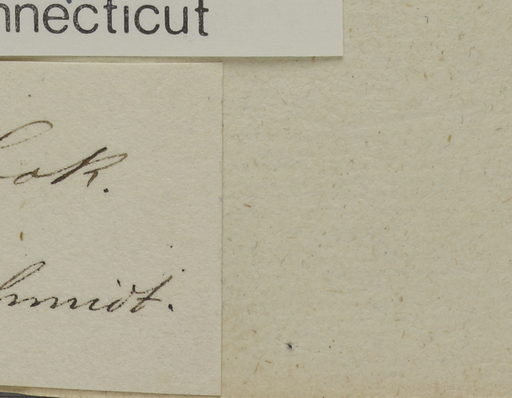 nnecticut
ok.
hmidt.